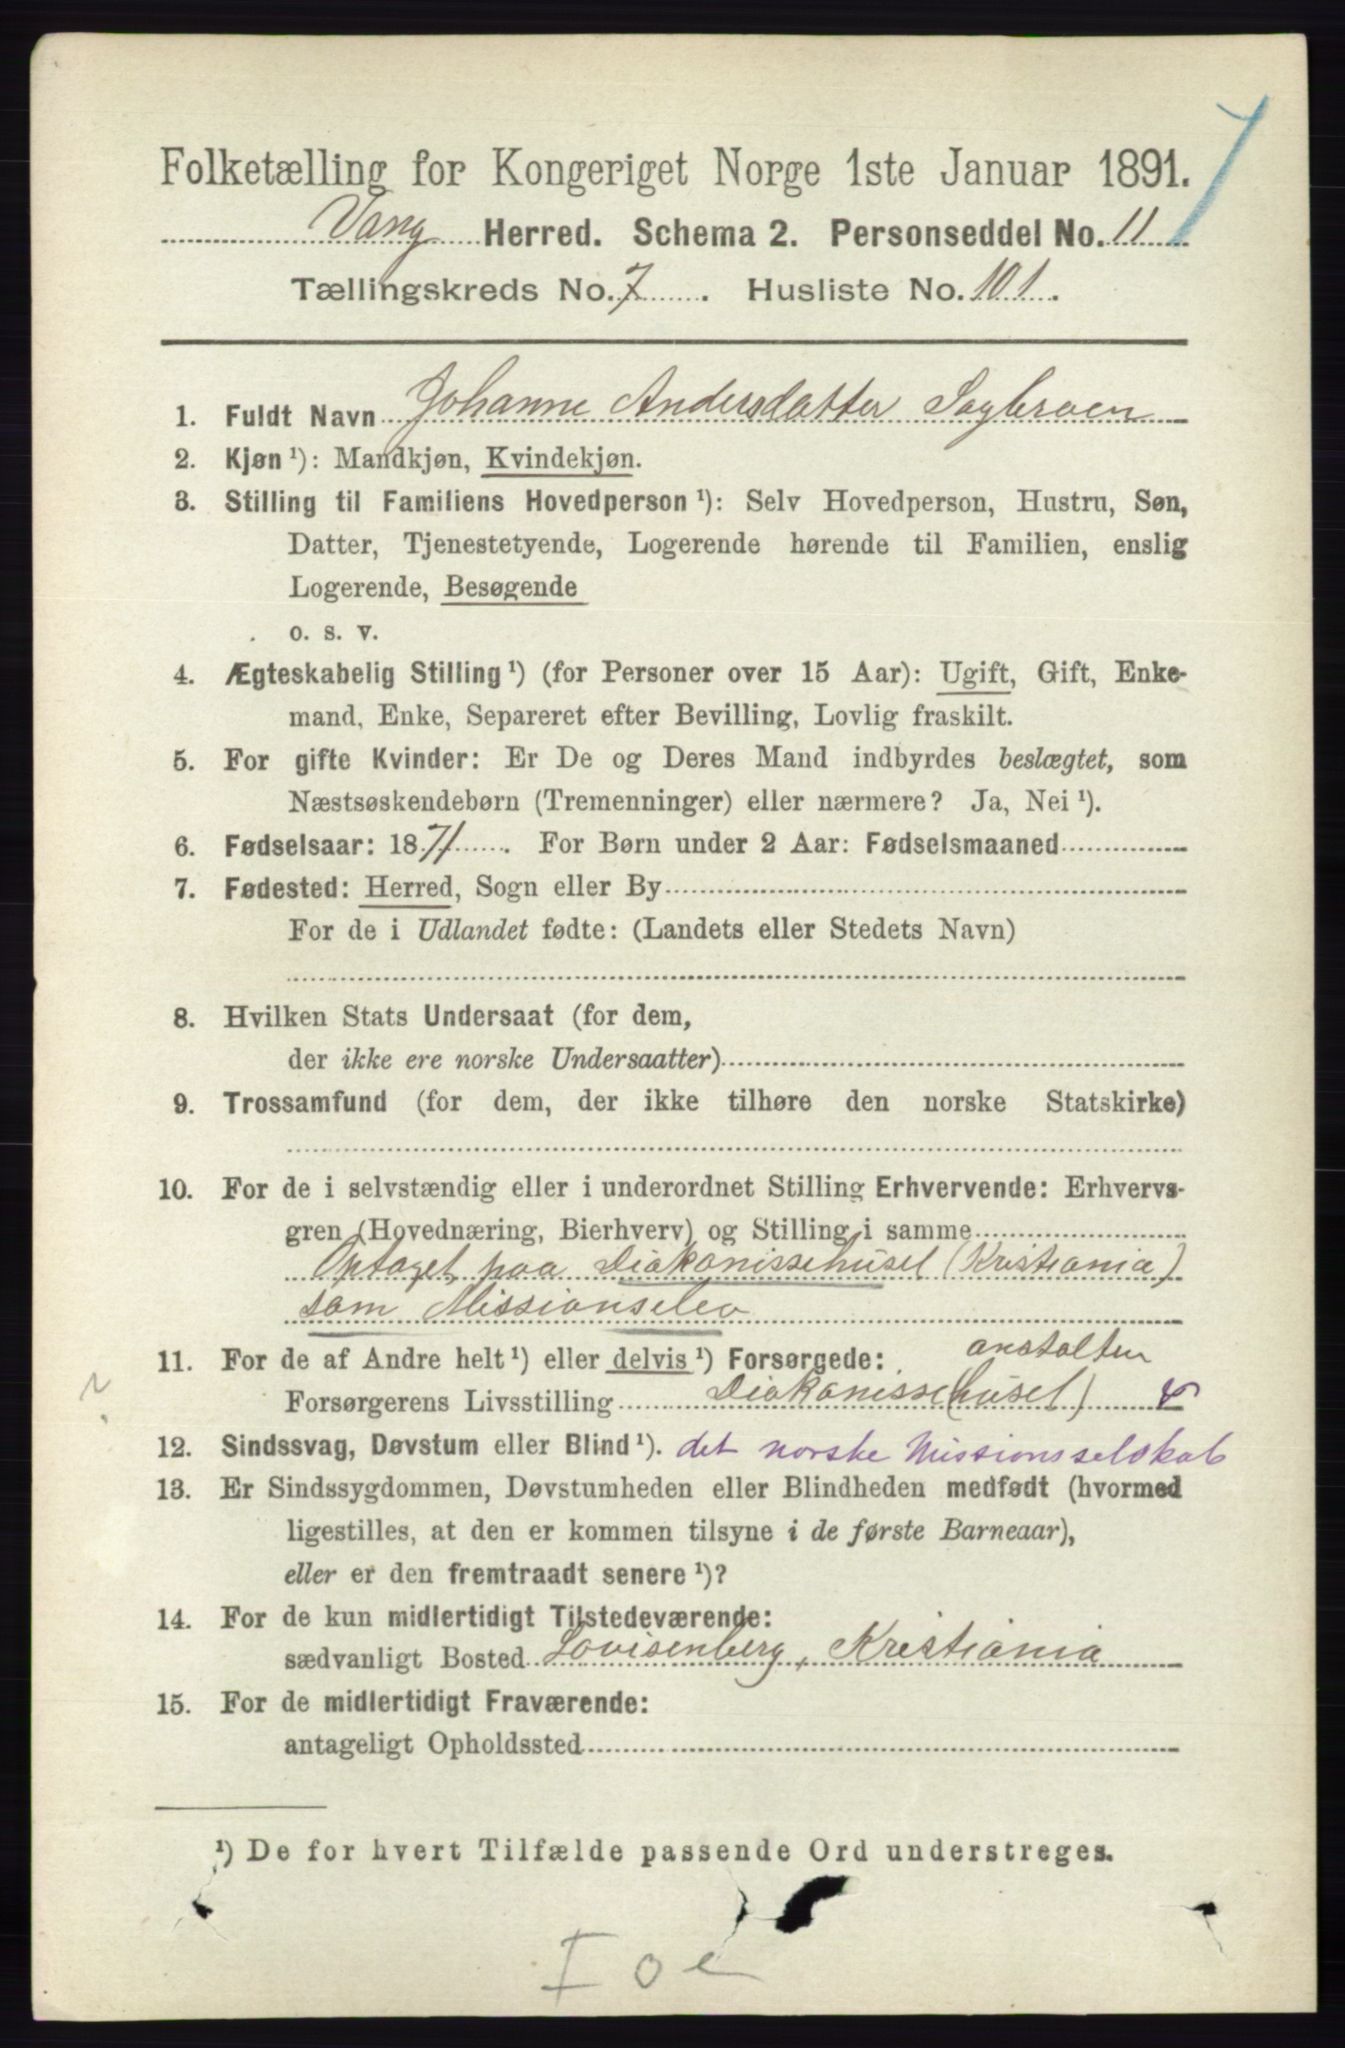 Folketælling for Kongeriget Norge 1ste Januar 1891.
Vang Herred. Schema 2. Personseddel No. 11
Tællingskreds No. 7. Husliste No. 101.
1. Fuldt Navn Johanne Andersdatter Sagbroen
2. Kjøn ¹): Mandkjøn, Kvindekjøn.
3. Stilling til Familiens Hovedperson ¹): Selv Hovedperson, Hustru, Søn,
Datter, Tjenestetyende, Logerende hørende til Familien, enslig
Logerende, Besøgende
o. s. v.
4. Ægteskabelig Stilling ¹) (for Personer over 15 Aar): Ugift, Gift, Enke-
mand, Enke, Separeret efter Bevilling, Lovlig fraskilt.
5. For gifte Kvinder: Er De og Deres Mand indbyrdes beslægtet, som
Næstsøskendebørn (Tremenninger) eller nærmere? Ja, Nei ¹).
6. Fødselsaar: 1871. For Børn under 2 Aar: Fødselsmaaned
7. Fødested: Herred, Sogn eller By
For de i Udlandet fødte: (Landets eller Stedets Navn)
8. Hvilken Stats Undersaat (for dem,
der ikke ere norske Undersaatter)
9. Trossamfund (for dem, der ikke tilhøre den norske Statskirke)
10. For de i selvstændig eller i underordnet Stilling Erhvervende: Erhvervs-
gren (Hovednæring, Bierhverv) og Stilling i samme
Optaget paa Diakonissehuset (Kristiania)
som Missionselev
11. For de af Andre helt ¹) eller delvis ¹) Forsørgede: anstalten
Forsørgerens Livsstilling Diakonisse(huset)
12. Sindssvag, Døvstum eller Blind ¹). det norske Missionsselskab
13. Er Sindssygdommen, Døvstumheden eller Blindheden medfødt (hvormed
ligestilles, at den er kommen tilsyne i de første Barneaar),
eller er den fremtraadt senere ¹)?
14. For de kun midlertidigt Tilstedeværende:
sædvanligt Bosted Lovisenberg, Kristiania
15. For de midlertidigt Fraværende:
antageligt Opholdssted
¹) De for hvert Tilfælde passende Ord understreges.